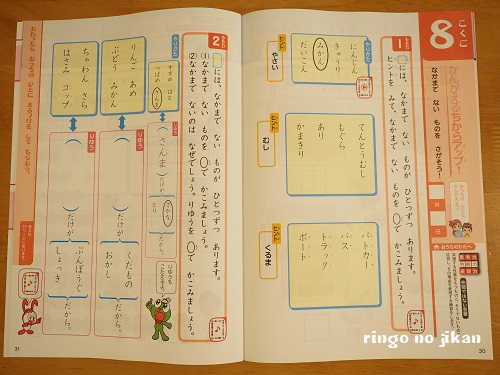 こくご
8
かんがえるちからアップ!
なかまで ない ものを さがそう!
月
日
おうちのかたへ
もんだい
1
□には、なかまで ない ものが ひとつずつ あります。
ヒントを みて、なかまで ない ものを ○で かこみましょう。
ヒント
やさい
にんじん
きゅうり
みかん
だいこん
ヒント
むし
てんとうむし
もぐら
あり
かまきり
ヒント
くるま
パトカー
バス
トラック
ボート
30
もんだい
2
□には、なかまで ない ものが ひとつずつ あります。
(1) なかまで ない ものを ○で かこみましょう。
(2) なかまで ないのは なぜでしょう。りゆうを ○で かこみましょう。
すずめ はと
つばめ さんま
りゆう
さんま
だけが
とり
さかな
だから。
りんご あめ
ぶどう みかん
りゆう
だけが
くだもの
おかし
だから。
ちゃわん さら
はさみ コップ
りゆう
だけが
ぶんぼうぐ
しょっき
だから。
おわったら おうちの ひとに まるつけを して もらおう。
31
ringo no jikan